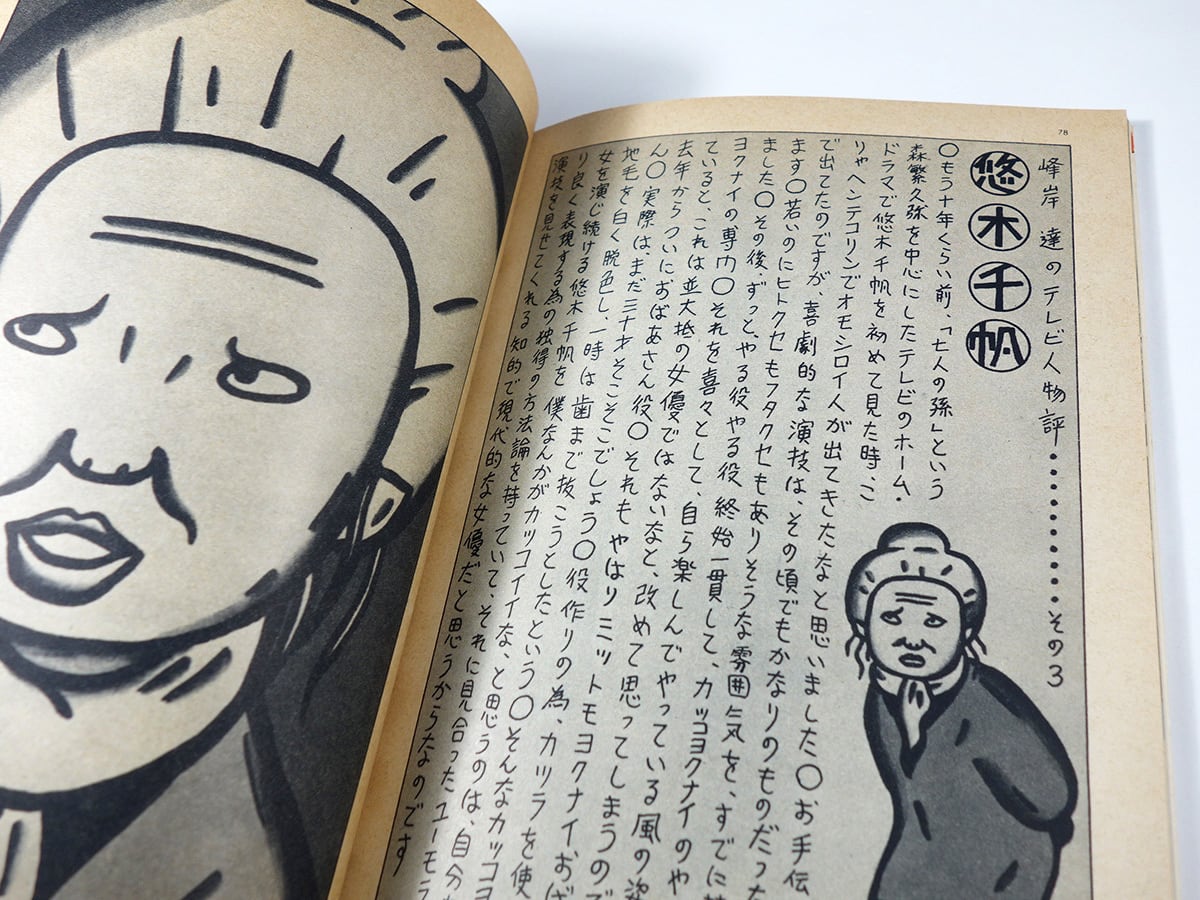 78
峰岸 達のテレビ人物評・・・・・・・・・・・その3
悠木千帆
〇もう十年くらい前、「七人の孫」という
森繁久弥を中心にしたテレビのホーム・
ドラマで悠木千帆を初めて見た時、こ
りゃヘンテコリンでオモシロイ人が出てきたなと思いました〇お手伝
で出てたのですが、喜劇的な演技は、その頃でもかなりのものだった
ます〇若いのにヒトクセもフタクセもありそうな雰囲気を、すでに
ました〇その後、ずっと、やる役やる役、終始一貫して、カッコヨクナイのや
ヨクナイの専門〇それを喜々として、自ら楽しんでやっている風の姿
ていると、これは並大抵の女優ではないなと、改めて思ってしまうので
去年からついにおばあさん役〇それもやはりミットモヨクナイおば
ん〇実際は、まだ三十才そこそこでしょう〇役作りの為、カツラを使
地毛を白く脱色し、一時は歯まで抜こうとしたという〇そんなカッコヨ
女を演じ続ける悠木千帆を僕なんかがカッコイイな、と思うのは、自分
り良く表現する為の独得の方法論を持っていて、それに見合ったユーモラ
演技を見せてくれる知的で現代的な女優だと思うからなのです